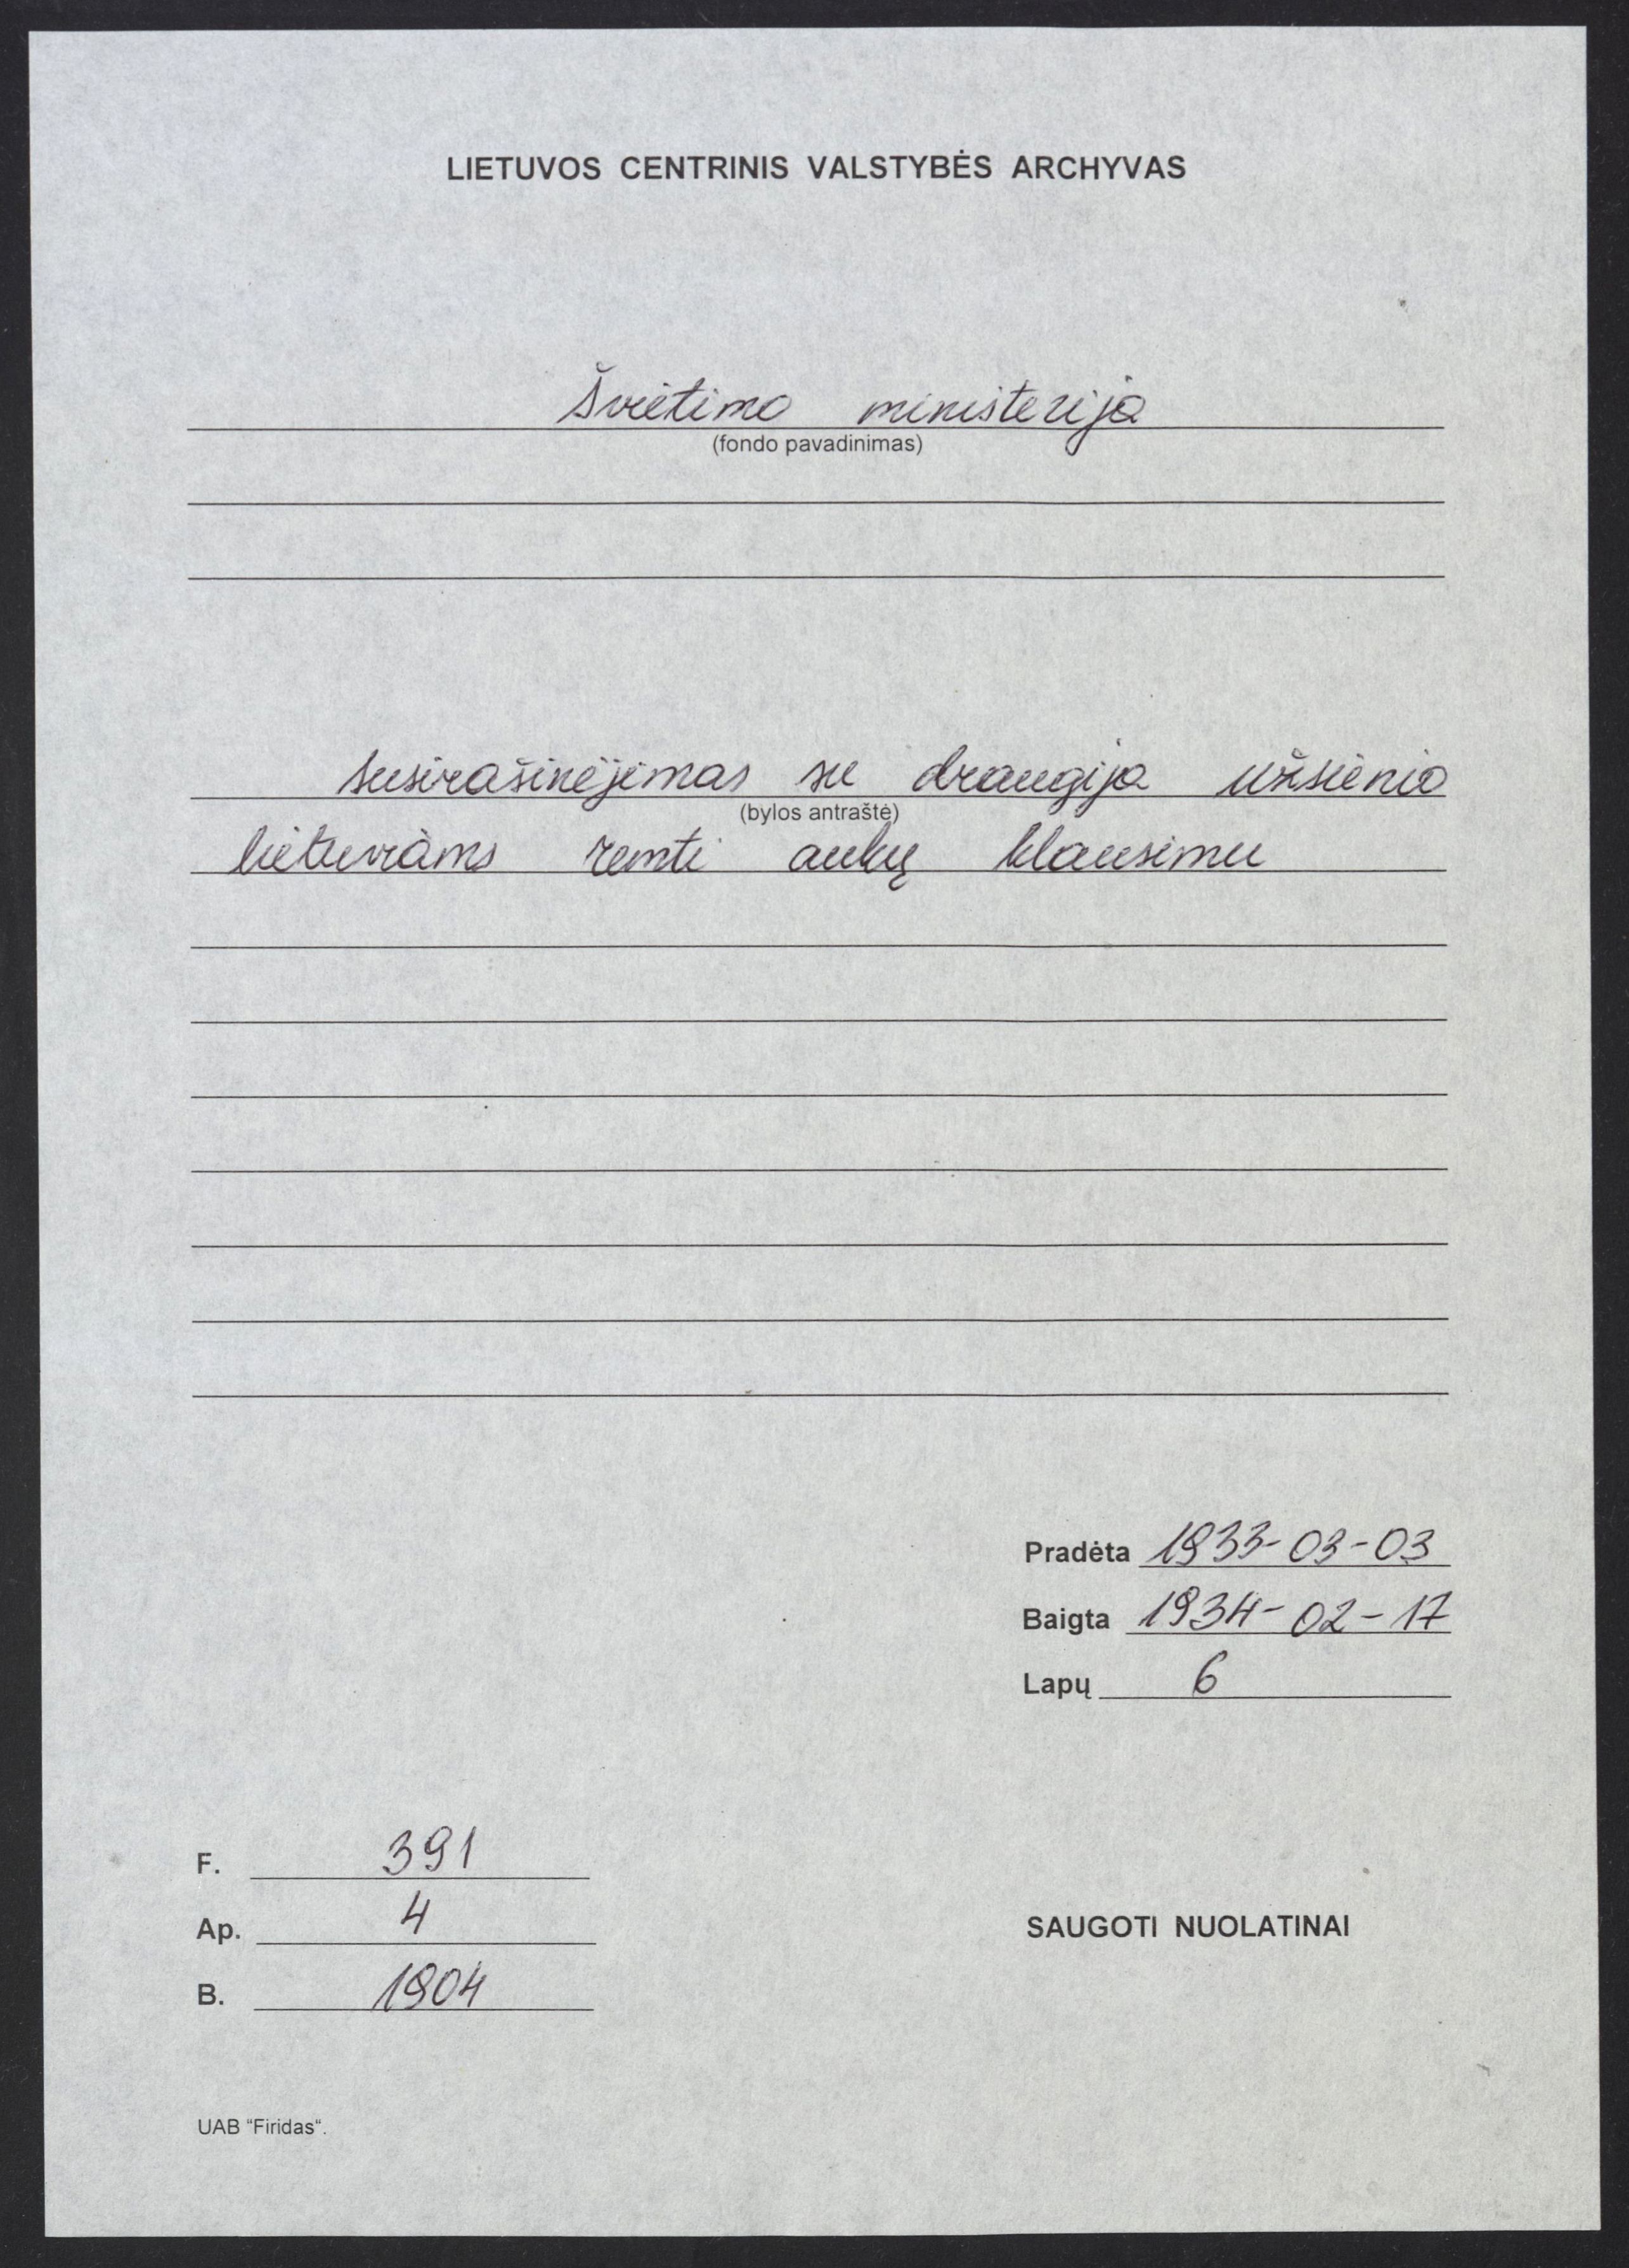 LIETUVOS CENTRINIS VALSTYBĖS ARCHYVAS
Švietimo ministerija
(fondo pavadinimas)
Susirašinėjimas su draugija užsienio
(bylos antraštė)
lietuviams remti aukų klausimu
Pradėta 1933-03-03
Baigta 1934-02-17
Lapų 6
F. 391
Ap. 4
B. 1904
SAUGOTI NUOLATINAI
UAB "Firidas“.